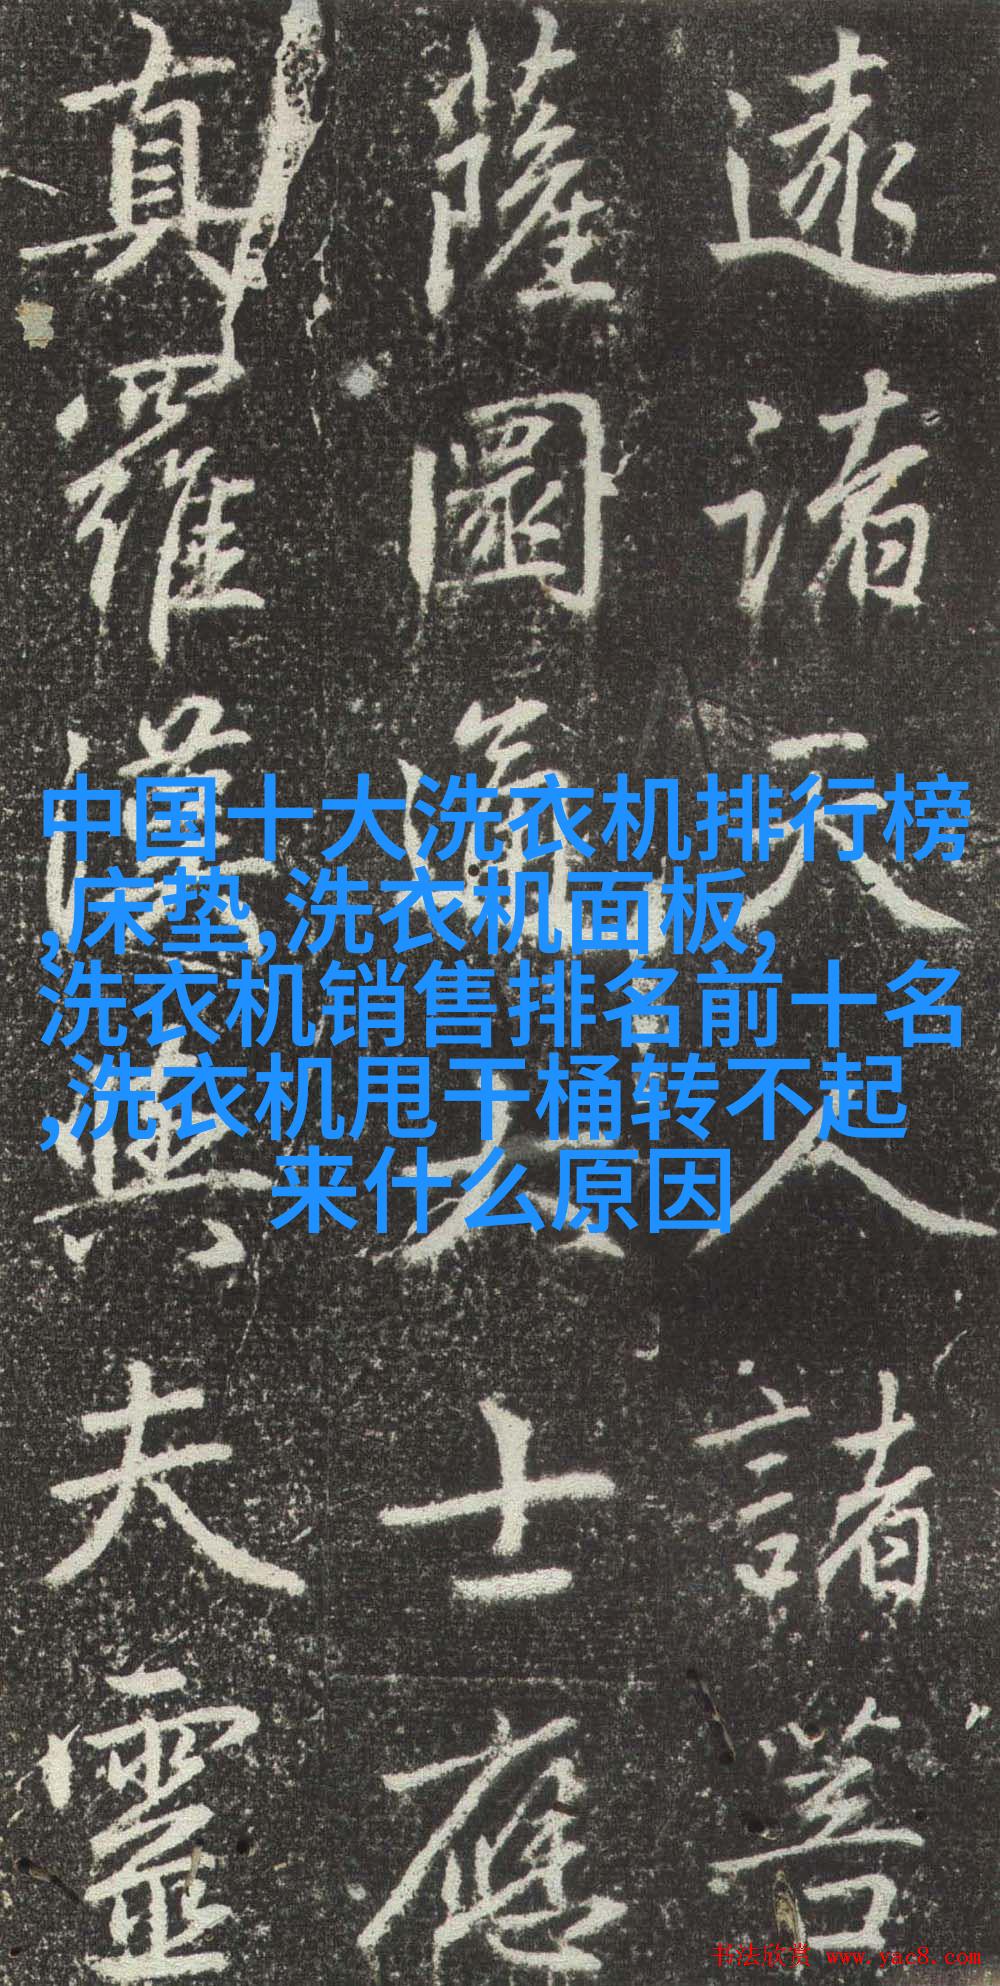 遠诸天人諸菩
薩圓淨大士應
真羅漢與夫靈
中国十大洗衣机排行榜
,床垫,洗衣机面板,
洗衣机销售排名前十名
,洗衣机甩干桶转不起
来什么原因
书法欣赏 www.yac8.com